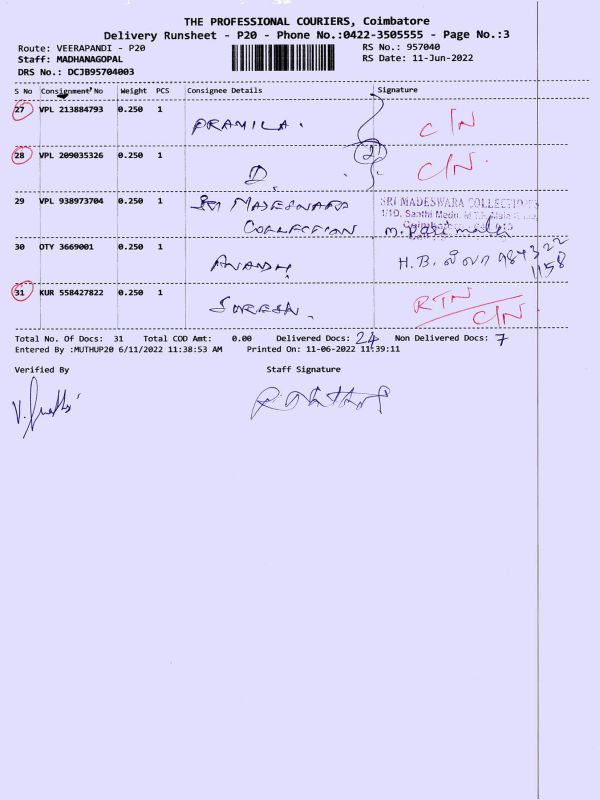 THE PROFESSIONAL COURIERS, Coimbatore
Delivery Runsheet - P20 - Phone No.:0422-3505555 - Page No.:3
Route: VEERAPANDI - P20 RS No.: 957040
Staff: MADHANAGOPAL RS Date: 11-Jun-2022
DRS No.: DCJB95704003
S No Consignment No Weight PCS Consignee Details Signature
27 VPL 213884793 0.250 1 PRAMILA. C/N
28 VPL 209035326 0.250 1 D. 2 C/N.
29 VPL 938973704 0.250 1 Sri MADESWARA SRI MADESWARA COLLECTIONS
COLLECTION
30 OTY 3669001 0.250 1 ANANDH H.B. 984322
1158
31 KUR 558427822 0.250 1 SURESH. RTN
C/N
Total No. Of Docs: 31 Total COD Amt: 0.00 Delivered Docs: 24 Non Delivered Docs: 7
Entered By :MUTHUP20 6/11/2022 11:38:53 AM Printed On: 11-06-2022 11:39:11
Verified By Staff Signature